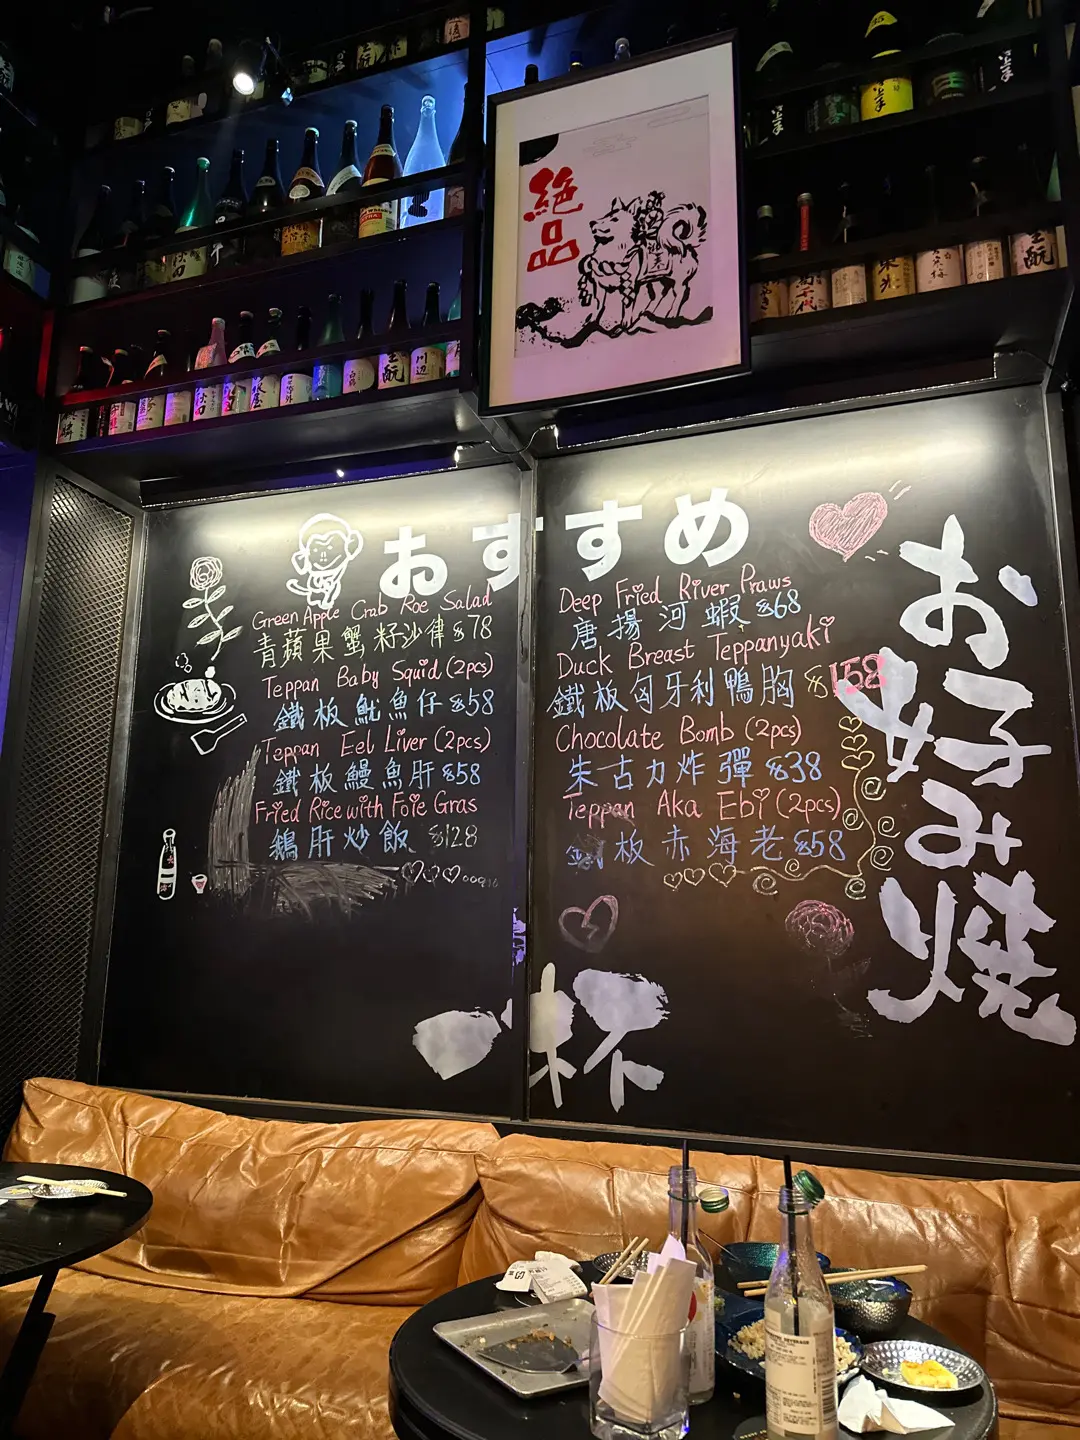 絶品
おすすめ
Green Apple Crab Roe Salad
青蘋果蟹籽沙律 $78
Teppan Baby Squid (2pcs)
鐵板魷魚仔 $58
Teppan Eel Liver (2pcs)
鐵板鰻魚肝 $58
Fried Rice with Foie Gras
鵝肝炒飯 $128
Deep Fried River Praws
唐揚河蝦 $68
Duck Breast Teppanyaki
鐵板匈牙利鴨胸 $158
Chocolate Bomb (2pcs)
朱古力炸彈 $38
Teppan Aka Ebi (2pcs)
鐵板赤海老 $58
お好み焼
一杯
川辺